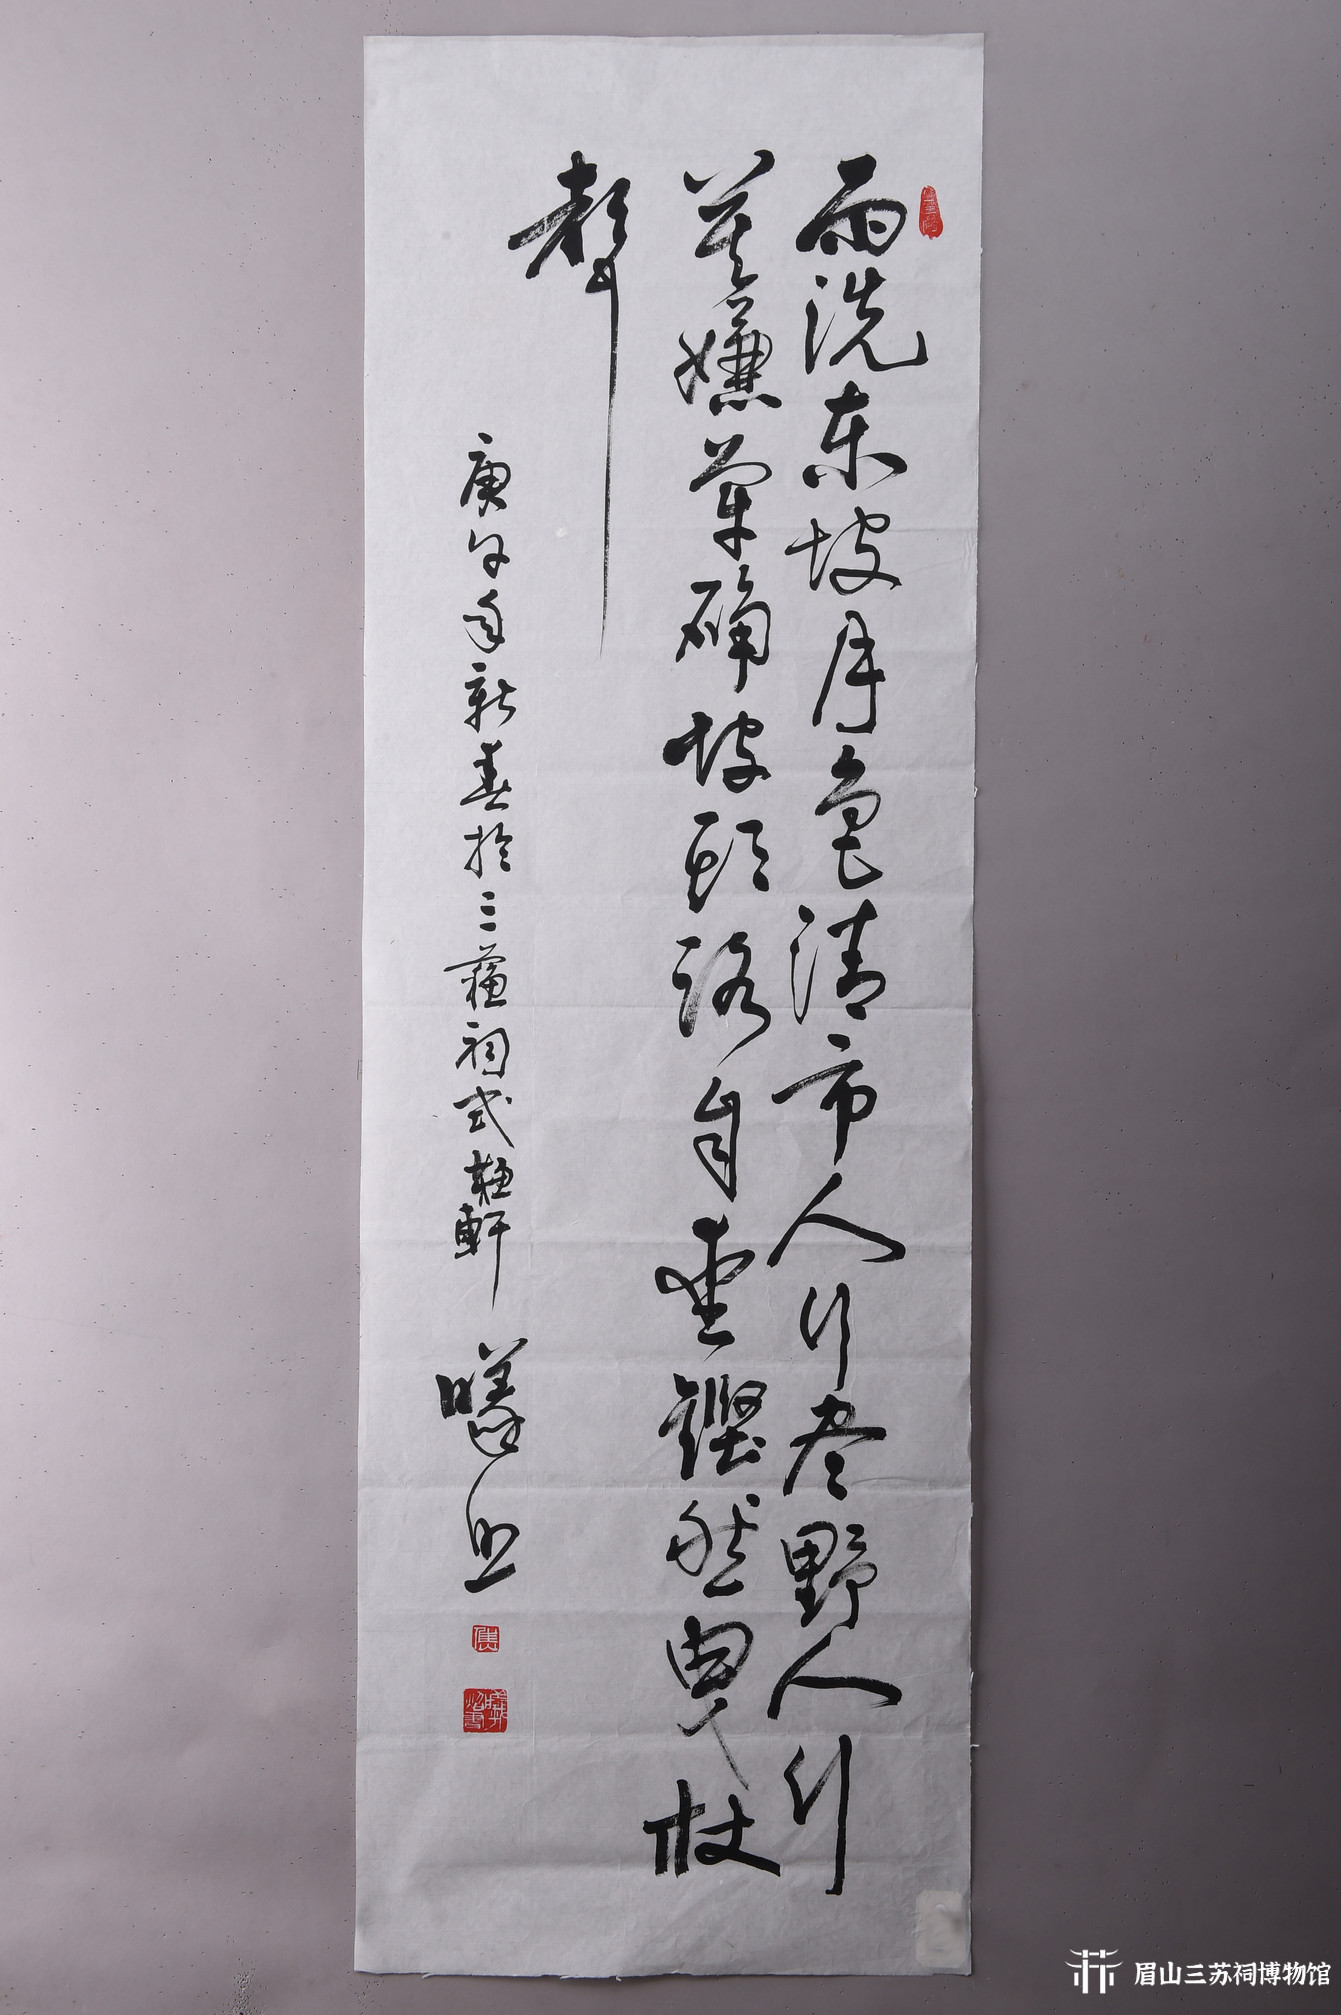 雨洗东坡月色清市人行尽野人行
莫嫌荦确坡头路自爱铿然曳杖
声
庚午年新春於三蘇祠式蘇軒
眉山三苏祠博物馆